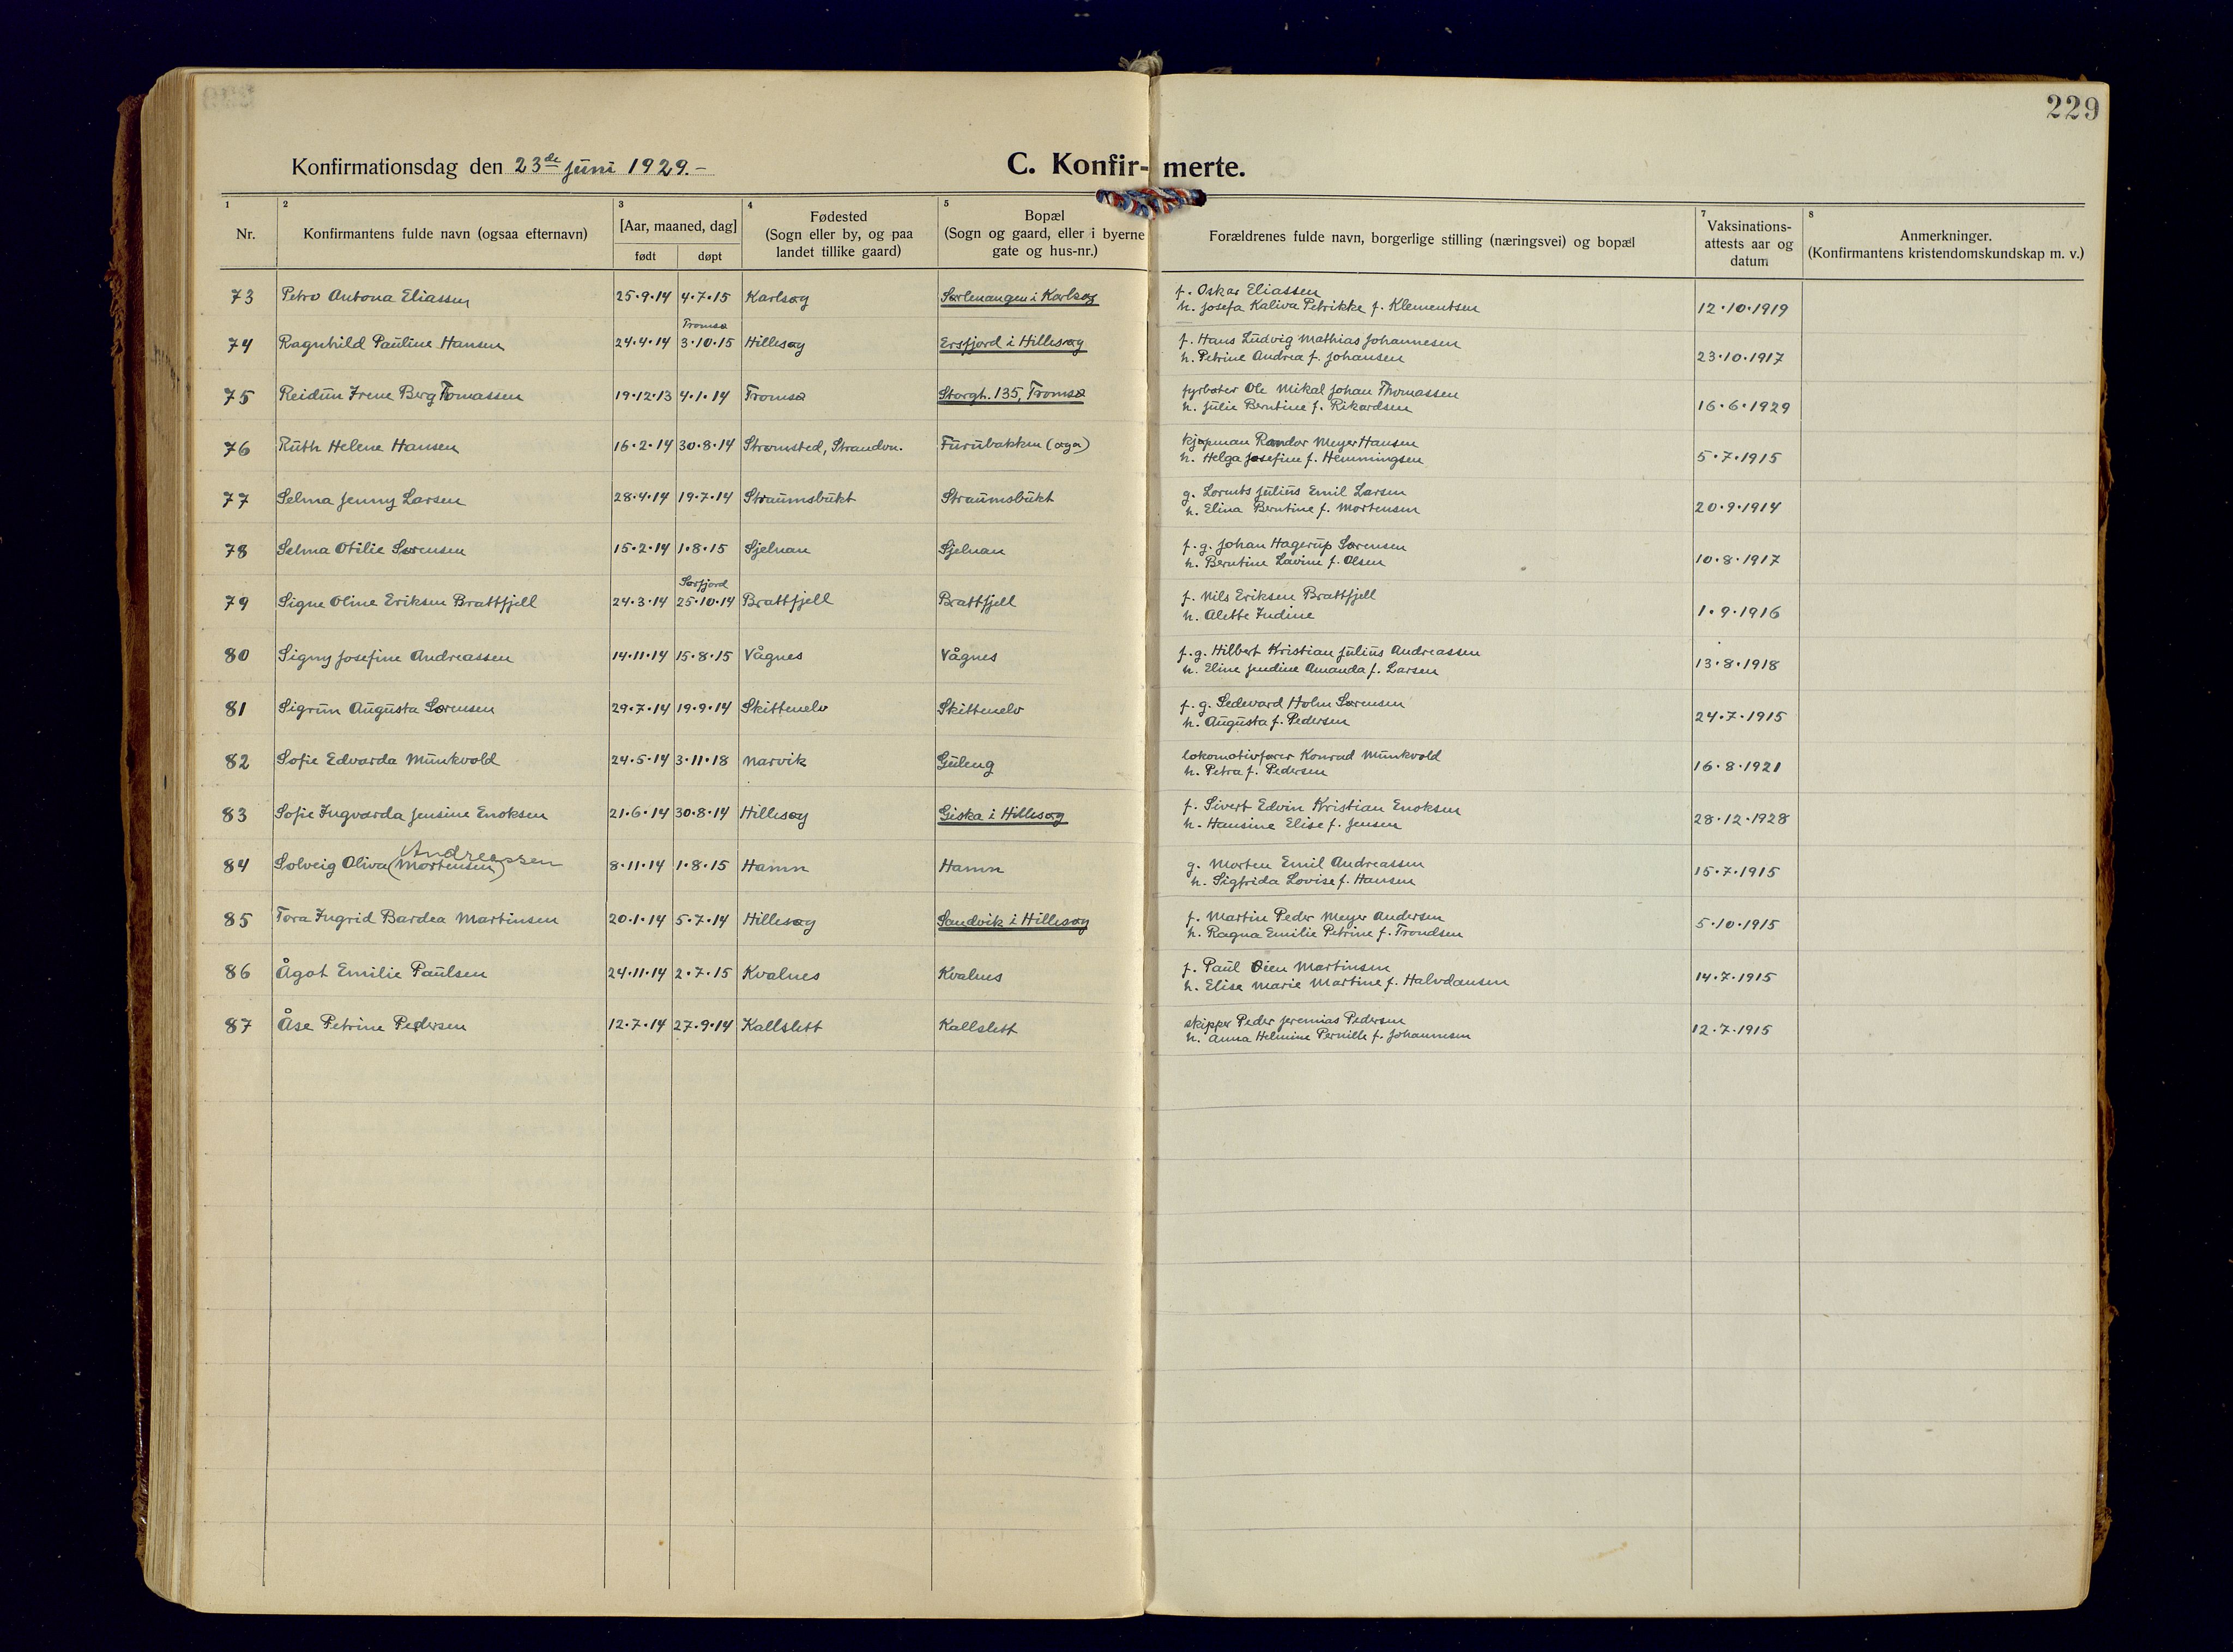 229
Konfirmationsdag den 23de juni 1929.-
C. Konfir- merte.
1 2 3 4 5 7 8
Nr.
Konfirmantens fulde navn (ogsaa efternavn)
[Aar, maaned, dag]
født døpt
Fødested
(Sogn eller by, og paa
landet tillike gaard)
Bopæl
(Sogn og gaard, eller i byerne
gate og hus-nr.)
Forældrenes fulde navn, borgerlige stilling (næringsvei) og bopæl
Vaksinations-
attests aar og
datum
Anmerkninger.
(Konfirmantens kristendomskundskap m. v.)
73 Petra Antona Eliassen 25·9·14 4·7·15 Karlsøy Sørlenangen i Karlsøy
f. Oskar Eliassen
h. Josefa Kaliva Petrikke f. Klementsen 12·10·1919
Tromsø
74 Ragnhild Pauline Hansen 24·4·14 3·10·15 Hillesøy Ersfjord i Hillesøy
f. Hans Ludvig Mathias Johannesen
h. Petrine Andrea f. Johansen 23·10·1917
75 Reidun Irene Berg Tomassen 19·12·13 4·1·14 Tromsø Storgt. 135, Tromsø
fyrbøter Ole Mikal Johan Thomassen
h. Julie Berntine f. Rikardsen 16·6·1929
76 Ruth Helene Hansen 16·2·14 30·8·14 Strømsted, Strandvn. Furubakken (øya)
kjøpman Randor Meyer Hansen
h. Helga Josefine f. Hemmingsen 5·7·1915
77 Selma Jenny Larsen 28·4·14 19·7·14 Straumsbukt Straumsbukt
g. Lorents Julius Emil Larsen
h. Elina Berntine f. Mortensen 20·9·1914
78 Selma Otilie Sørensen 15·2·14 1·8·15 Sjelnan Sjelnan
f. g. Johan Hagerup Sørensen
h. Berntine Lavine f. Olsen 10·8·1917
Sørfjord
79 Signe Oline Eriksen Brattfjell 24·3·14 25·10·14 Brattfjell Brattfjell
f. Nils Eriksen Brattfjell
h. Alette Indine 1·9·1916
80 Signy Josefine Andreassen 14·11·14 15·8·15 Vågnes Vågnes
f. g. Hilbert Kristian Julius Andreassen
h. Eline Jendine Amanda f. Larsen 13·8·1918
81 Sigrun Augusta Sørensen 29·7·14 19·9·14 Skittenelv Skittenelv
f. g. Sedevard Holm Sørensen
h. Augusta f. Pedersen 24·7·1915
82 Sofie Edvarda Munkvold 24·5·14 3·11·18 Narvik Guleng
lokomotivfører Konrad Munkvold
h. Petra f. Pedersen 16·8·1921
83 Sofie Ingvarda Jensine Enoksen 21·6·14 30·8·14 Hillesøy Giska i Hillesøy
f. Sivert Edvin Kristian Enoksen
h. Hansine Elise f. Jensen 28·12·1928
Andreassen
84 Solveig Oliva (Mortensen) 8·11·14 1·8·15 Hamn Hamn
g. Morten Emil Andreassen
h. Sigfrida Lovise f. Hansen 15·7·1915
85 Tora Ingrid Bardea Martinsen 20·1·14 5·7·14 Hillesøy Sandvik i Hillesøy
f. Martin Peder Meyer Andersen
h. Ragna Emilie Petrine f. Trondsen 5·10·1915
86 Ågot Emilie Paulsen 24·11·14 2·7·15 Kvalnes Kvalnes
f. Paul Oien Martinsen
h. Elise Marie Martine f. Halvdansen 14·7·1915
87 Åse Petrine Pedersen 12·7·14 27·9·14 Kallslett Kallslett
skipper Peder Jeremias Pedersen
h. Anna Helmine Pernille f. Johannesen 12·7·1915